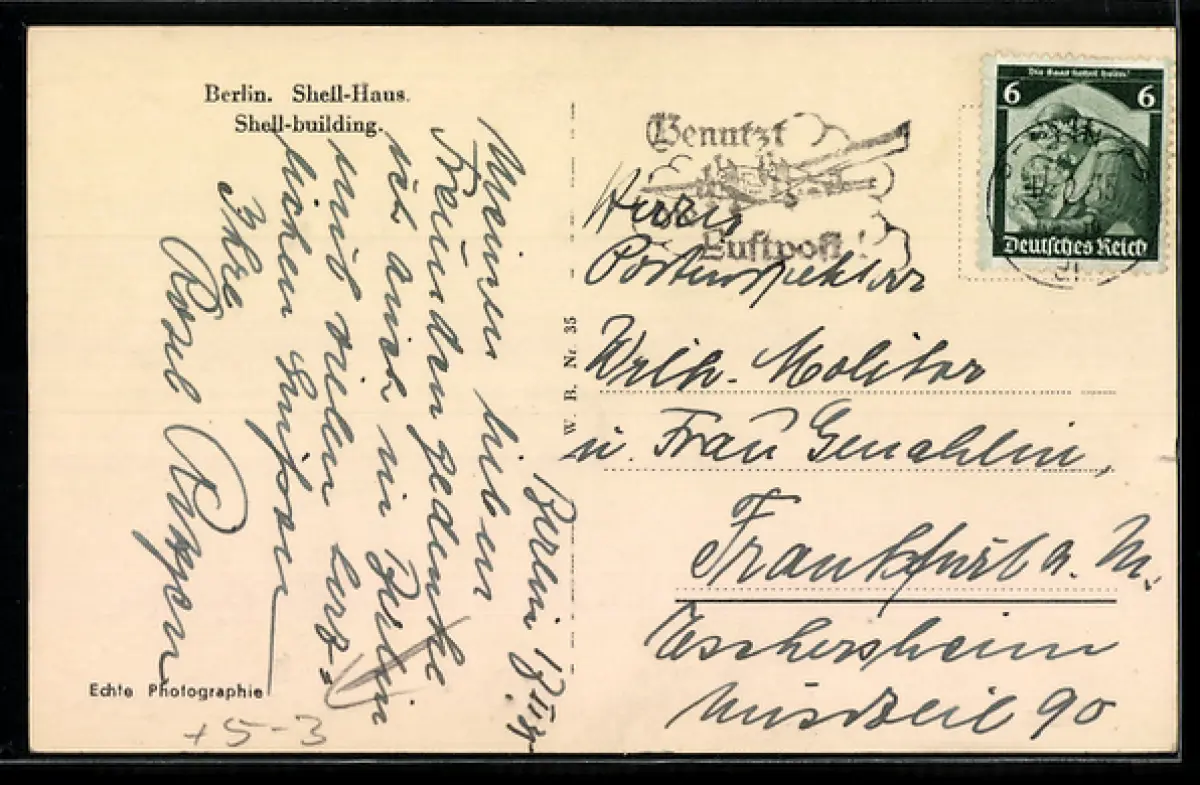 Berlin. Shell-Haus.
Shell-building.
Berlin
Meinen lieben
Freunden gedenke
ich auch in Berlin
mit vielen herz-
lichen Grüßen
Ihre
Rosel
Echte Photographie
+5-3
W. B. Nr. 35
Benutzt
Luftpost!
6 6
Deutsches Reich
Herrn
Postinspektor
Wilh. Molitor
u. Frau Gemahlin,
Frankfurt a. M.
Eschersheim
90